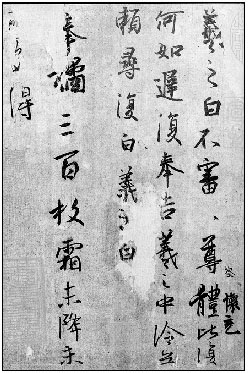 懷充
羲之白不審、尊體比復
何如遲復奉告羲之中冷無
賴尋復白羲之白
奉橘三百枚霜未降未
可多得